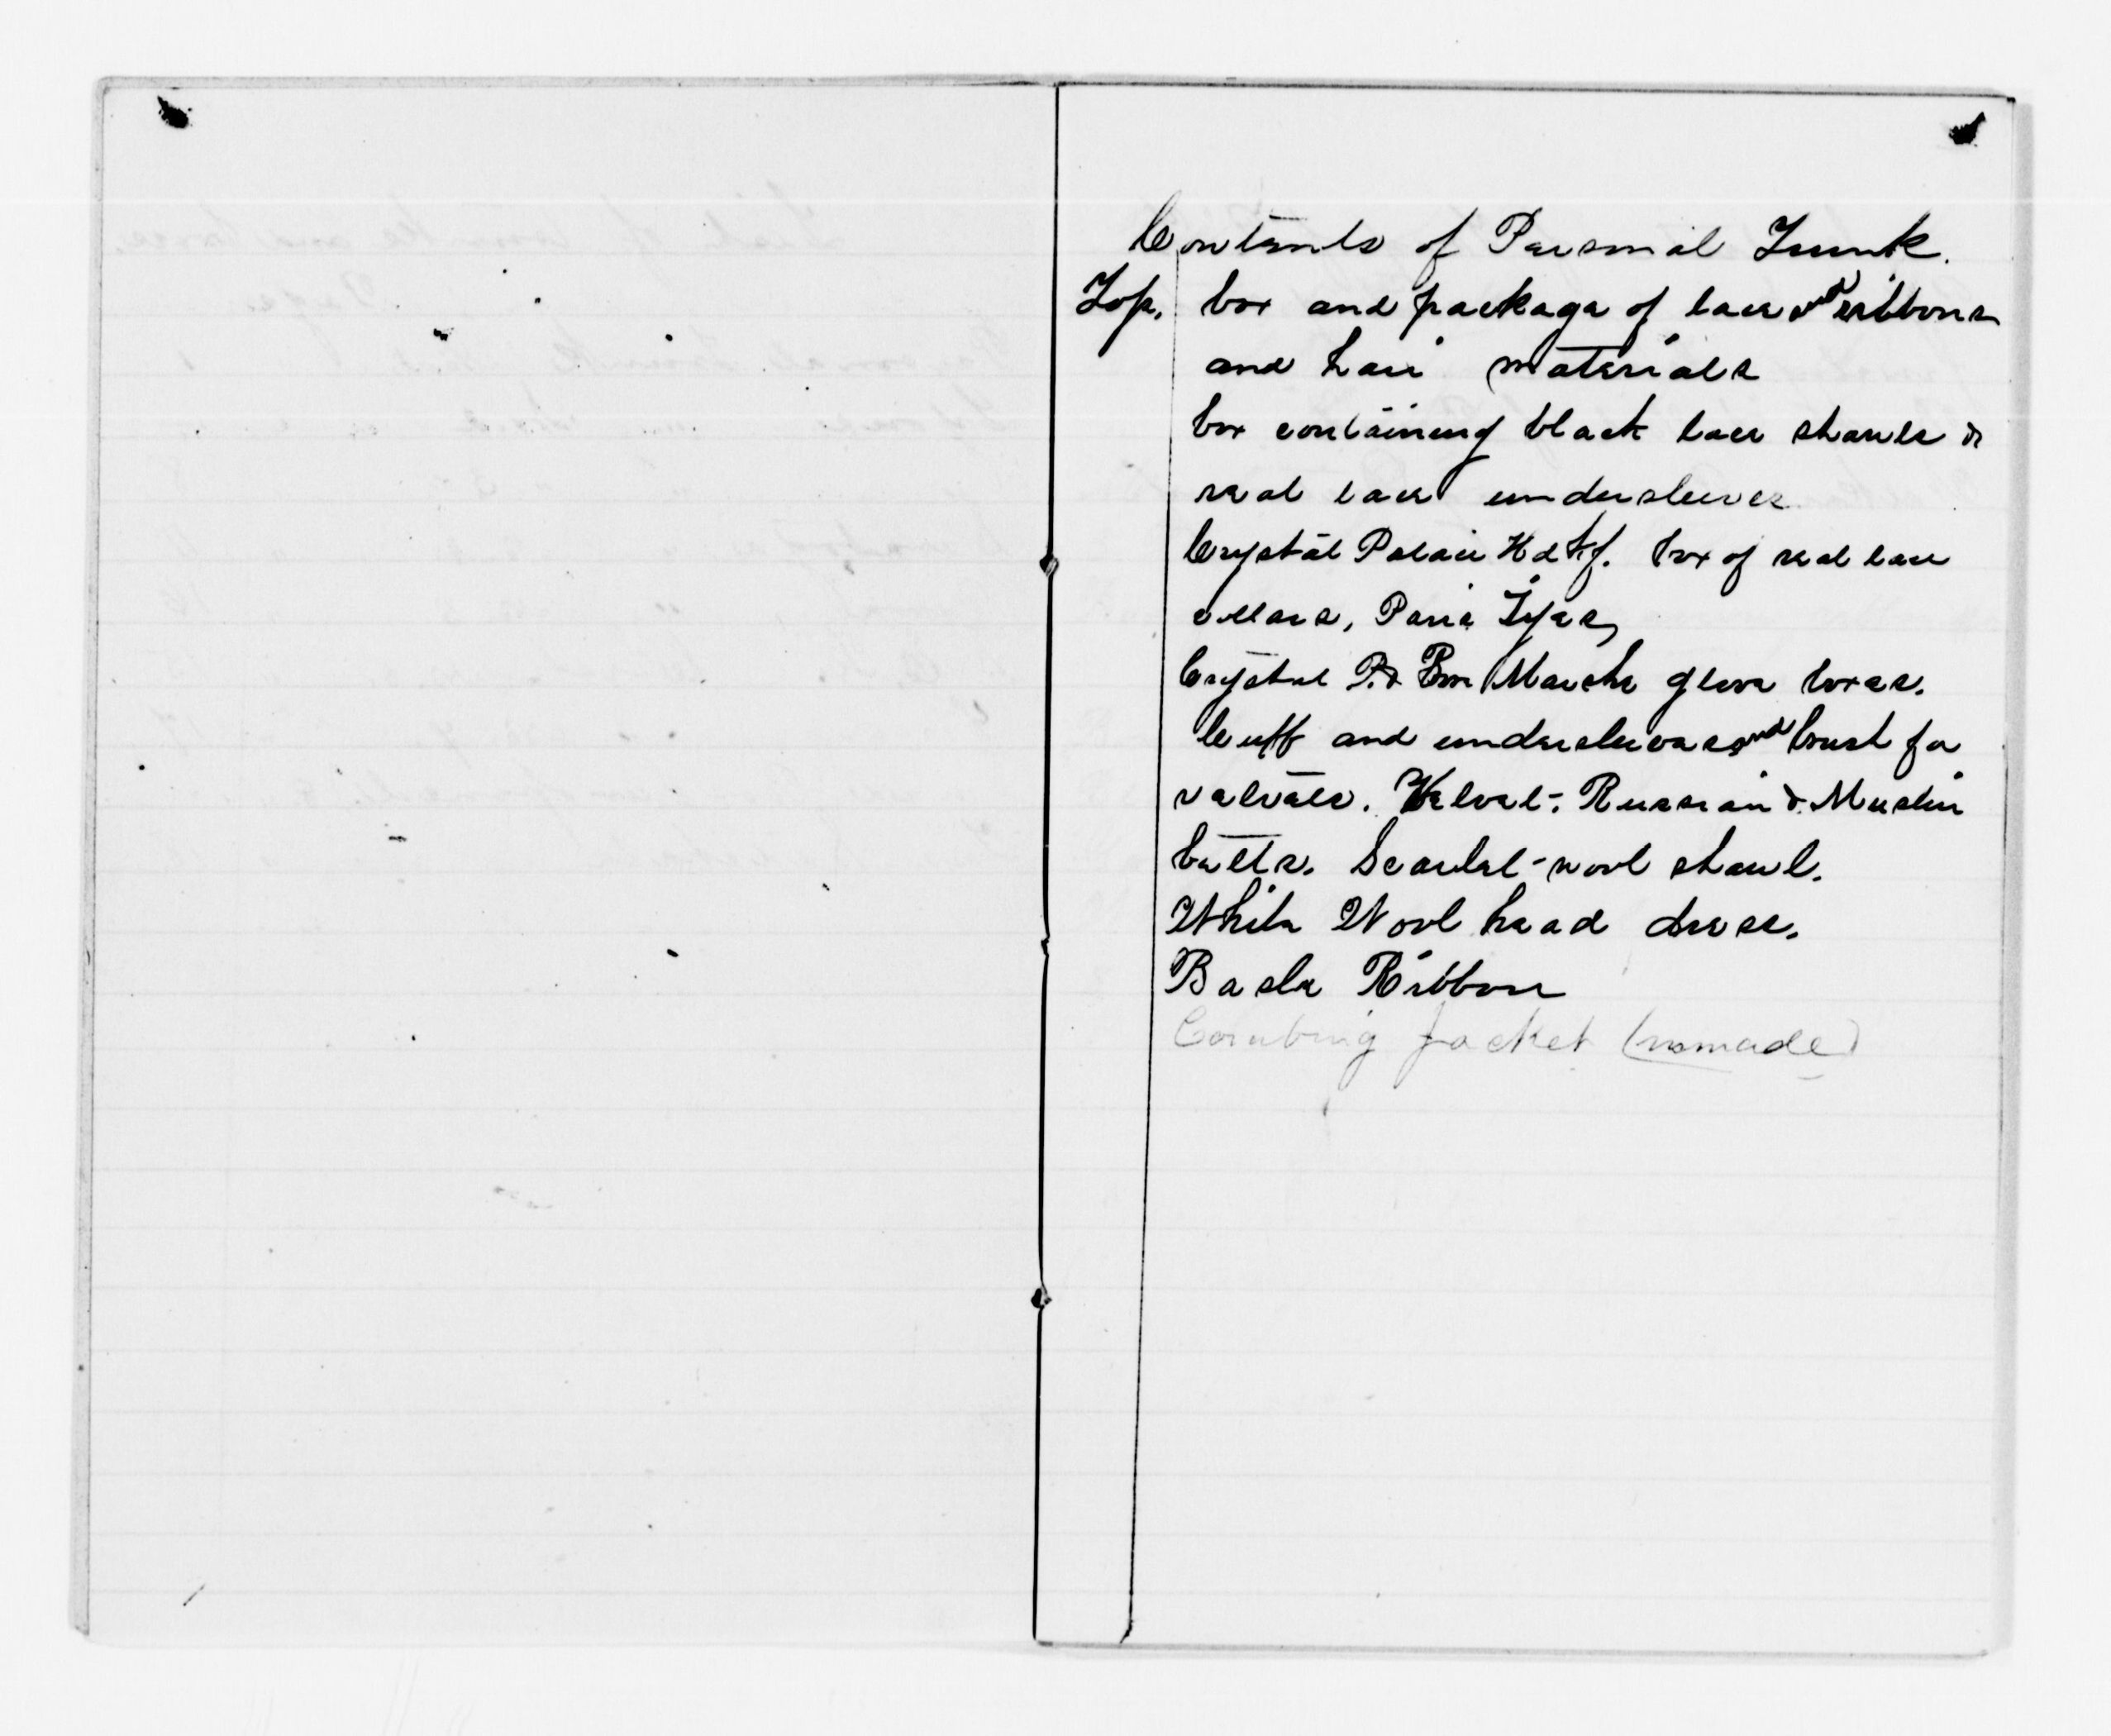 Contents of Personal Trunk.
Top. box and package of lace and ribbons
and hair materials
box containing black lace shawls &
real lace undersleeves
Crystal Palace Hdkf. box of real lace
collars, Paris Tyes,
Crystal P. & Bon Marche glove boxes.
Cuff and undersleeves and brush for
velvets. Velvet. Russian & Muslin
belts. Scarlet wool shawl.
White Wool head dress.
Basle Ribbon
Combing Jacket (unmade)